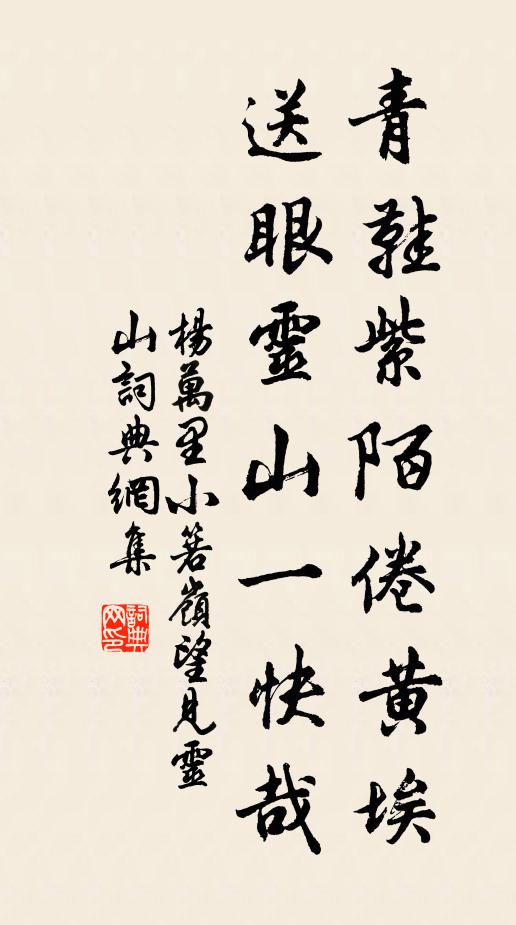 青鞋紫陌倦黃埃
送眼靈山一快哉
楊萬里小箬嶺望見靈
山詞典網集
詞典
网印